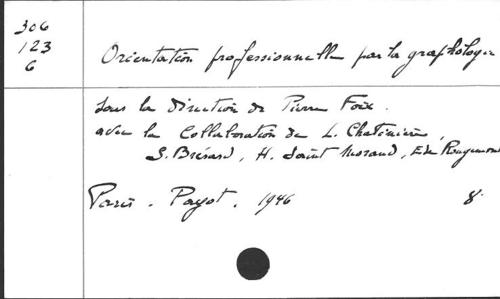 306
123
6
Orientation professionnelle par la graphologie
sous la direction de Pierre Foix.
avec la Collaboration de L. Chatinière,
S. Brésard, H. Saint Morand, E. de Rougemont
Paris. Payot. 1946 8°